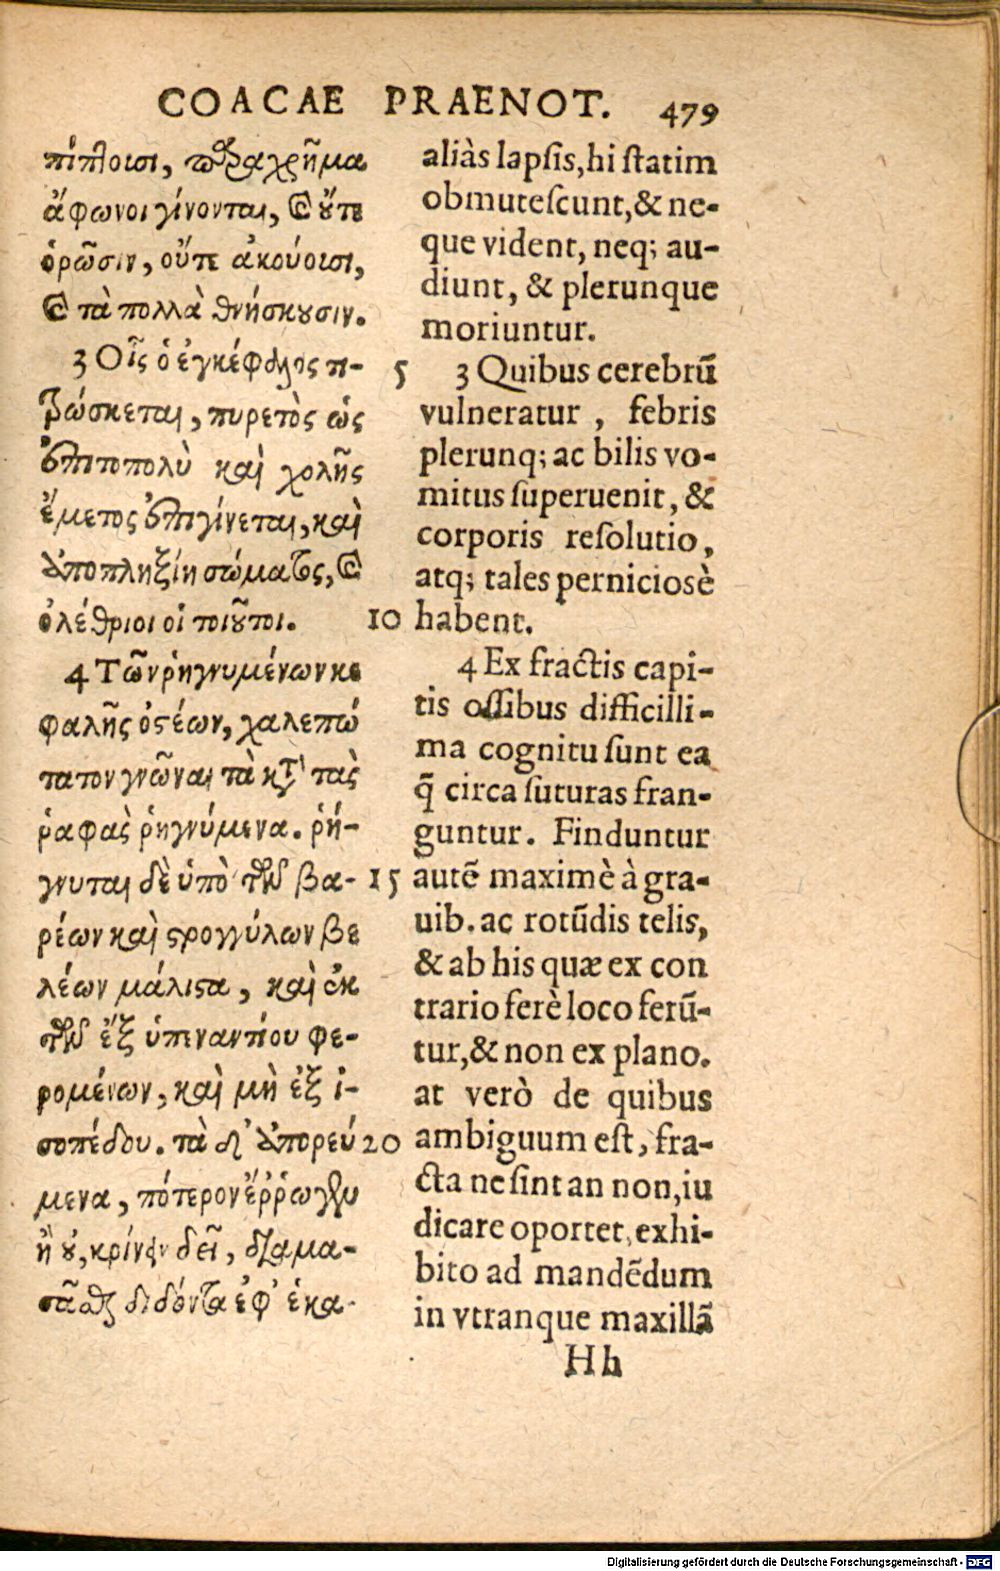 COACAE PRAENOT. 479
πίπτουσι, παραχρῆμα
ἄφωνοι γίνονται, καὶ οὔτε
ὁρῶσιν, οὔτε ἀκούουσι,
καὶ τὰ πολλὰ θνήσκουσιν.
3 Οἷς ὁ ἐγκέφαλος τι-
τρώσκεται, πυρετὸς ὡς
ἐπιτοπολὺ καὶ χολῆς
ἔμετος ἐπιγίνεται, καὶ
ἀποπληξίη σώματος, καὶ
ὀλέθριοι οἱ τοιοῦτοι.
4 Τῶν ῥηγνυμένων κε
φαλῆς ὀστέων, χαλεπώ
τατον γνῶναι τὰ κατὰ τὰς
ῥαφὰς ῥηγνύμενα. ῥή-
γνυται δὲ ὑπὸ τῶν βα-
ρέων καὶ στρογγύλων βε
λέων μάλιστα, καὶ ἐκ
τῶν ἐξ ὑπεναντίου φε-
ρομένων, καὶ μὴ ἐξ ἰ-
σοπέδου. τὰ δ' ἀπορεύ
μενα, πότερον ἔρρωγεν
ἢ οὔ, κρίνειν δεῖ, διαμα-
σᾶσθαι διδόντα ἐφ' ἑκα-
5
10
15
20
aliàs lapsis, hi statim
obmutescunt, & ne-
que vident, neq; au-
diunt, & plerunque
moriuntur.
3 Quibus cerebrū
vulneratur , febris
plerunq; ac bilis vo-
mitus superuenit, &
corporis resolutio,
atq; tales perniciosè
habent.
4 Ex fractis capi-
tis ossibus difficilli-
ma cognitu sunt ea
q̄ circa suturas fran-
guntur. Finduntur
autē maximè à gra-
uib. ac rotūdis telis,
& ab his quæ ex con
trario ferè loco ferū-
tur, & non ex plano.
at verò de quibus
ambiguum est, fra-
cta ne sint an non, iu
dicare oportet, exhi-
bito ad mandēdum
in vtranque maxillā
Hh
Digitalisierung gefördert durch die Deutsche Forschungsgemeinschaft - DFG